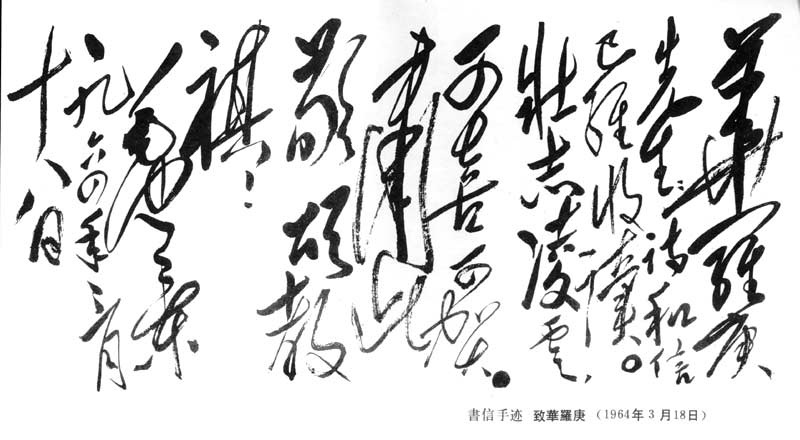 華羅庚
先生：詩和信
已經收讀。
壯志凌雲，
可喜可賀。
肅此
敬頌教
祺！
毛澤東
一九六四年三月
十八日
書信手迹 致華羅庚 （1964年3月18日）